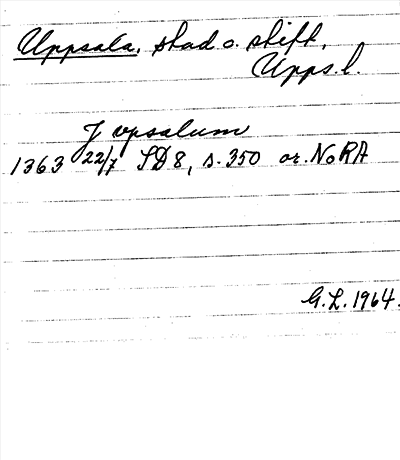 Uppsala, stad o. stift,
Upps. l.
J vpsalum
1363 22/7 SD 8, s. 350 or. NoRA
G.L. 1964.